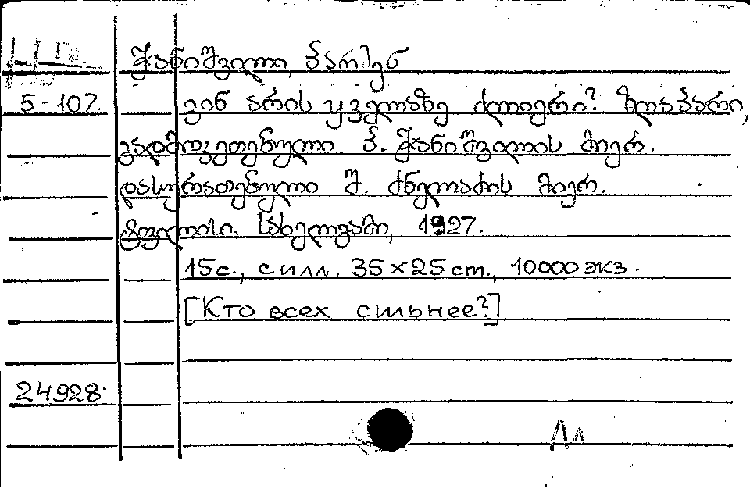 ჭანიშვილი, პარმენ
5-107. ვინ არის ყველაზე ძლიერი? ზღაპარი,
გადმოკეთებული პ. ჭანიშვილის მიერ.
დასურათებული შ. ძნელაძის მიერ.
ტფილისი. სახელგამი, 1927.
15с., с илл. 35×25 cm., 10000 экз.
[Кто всех сильнее?]
24928.